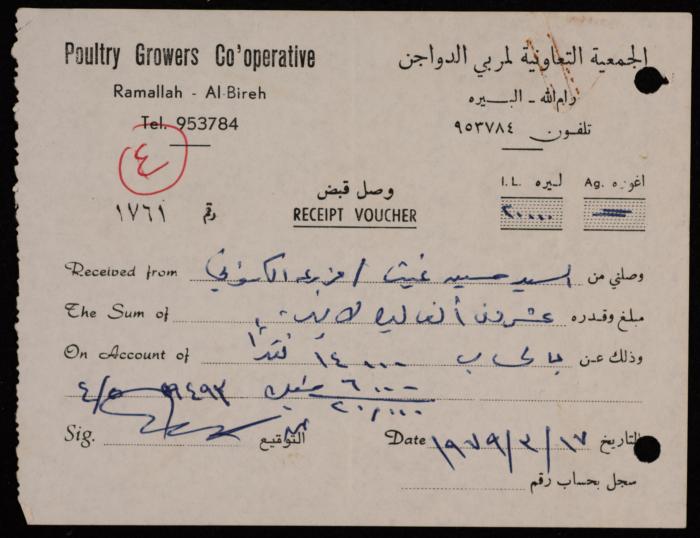 Poultry Growers Co'operative
الجمعية التعاونية لمربي الدواجن
Ramallah - Al-Bireh
رام الله - البيره
Tel. 953784
تلفون ٩٥٣٧٨٤
٤
وصل قبض
RECEIPT VOUCHER
I.L. ليره
Ag. اغوره
٢٠٠٠٠
رقم ١٧٦١
Received from السيد حسين غيث / مزرعة وصلني من
The Sum of عشرون ألف ليرة لا غير مبلغ وقدره
On Account of بالحساب ١٤٠٠٠ نقدا وذلك عن
٦٠٠٠
٢٠,٠٠٠
Sig. التوقيع
Date ١٩٧٩/٣/١٧ التاريخ
سجل بحساب رقم